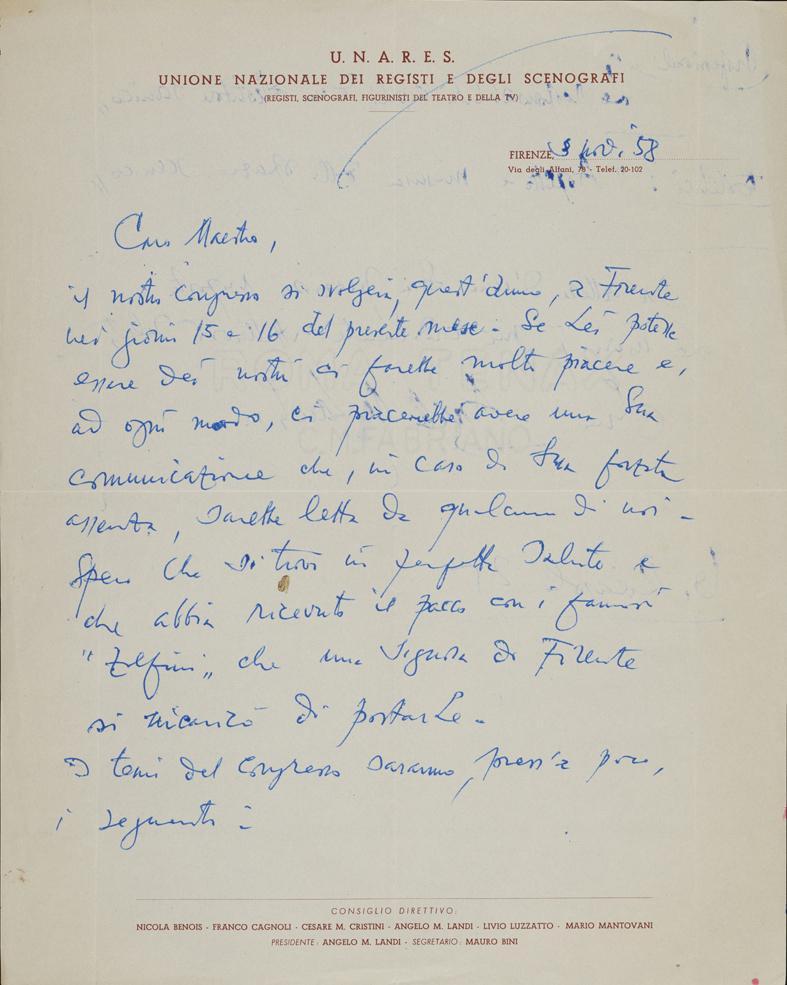 U. N. A. R. E. S.
UNIONE NAZIONALE DEI REGISTI E DEGLI SCENOGRAFI
(REGISTI, SCENOGRAFI, FIGURINISTI DEL TEATRO E DELLA TV)
FIRENZE, 3 nov. '58
Via degli Alfani, 78 - Telef. 20-102
Caro Maestro,
il nostro Congresso si svolgerà, quest'anno, a Firenze
nei giorni 15 e 16 del presente mese - Se Lei potesse
essere dei nostri ci farebbe molto piacere e,
ad ogni modo, ci piacerebbe avere una Sua
comunicazione che, in caso di Sua forzata
assenza, sarebbe letta da qualcuno di noi -
Spero che si trovi in perfetta salute e
che abbia ricevuto il pacco con i famosi
"Zolfini" che una Signora di Firenze
si incaricò di portarLe -
I temi del Congresso saranno, press'a poco,
i seguenti :
CONSIGLIO DIRETTIVO:
NICOLA BENOIS - FRANCO CAGNOLI - CESARE M. CRISTINI - ANGELO M. LANDI - LIVIO LUZZATTO - MARIO MANTOVANI
PRESIDENTE: ANGELO M. LANDI - SEGRETARIO: MAURO BINI